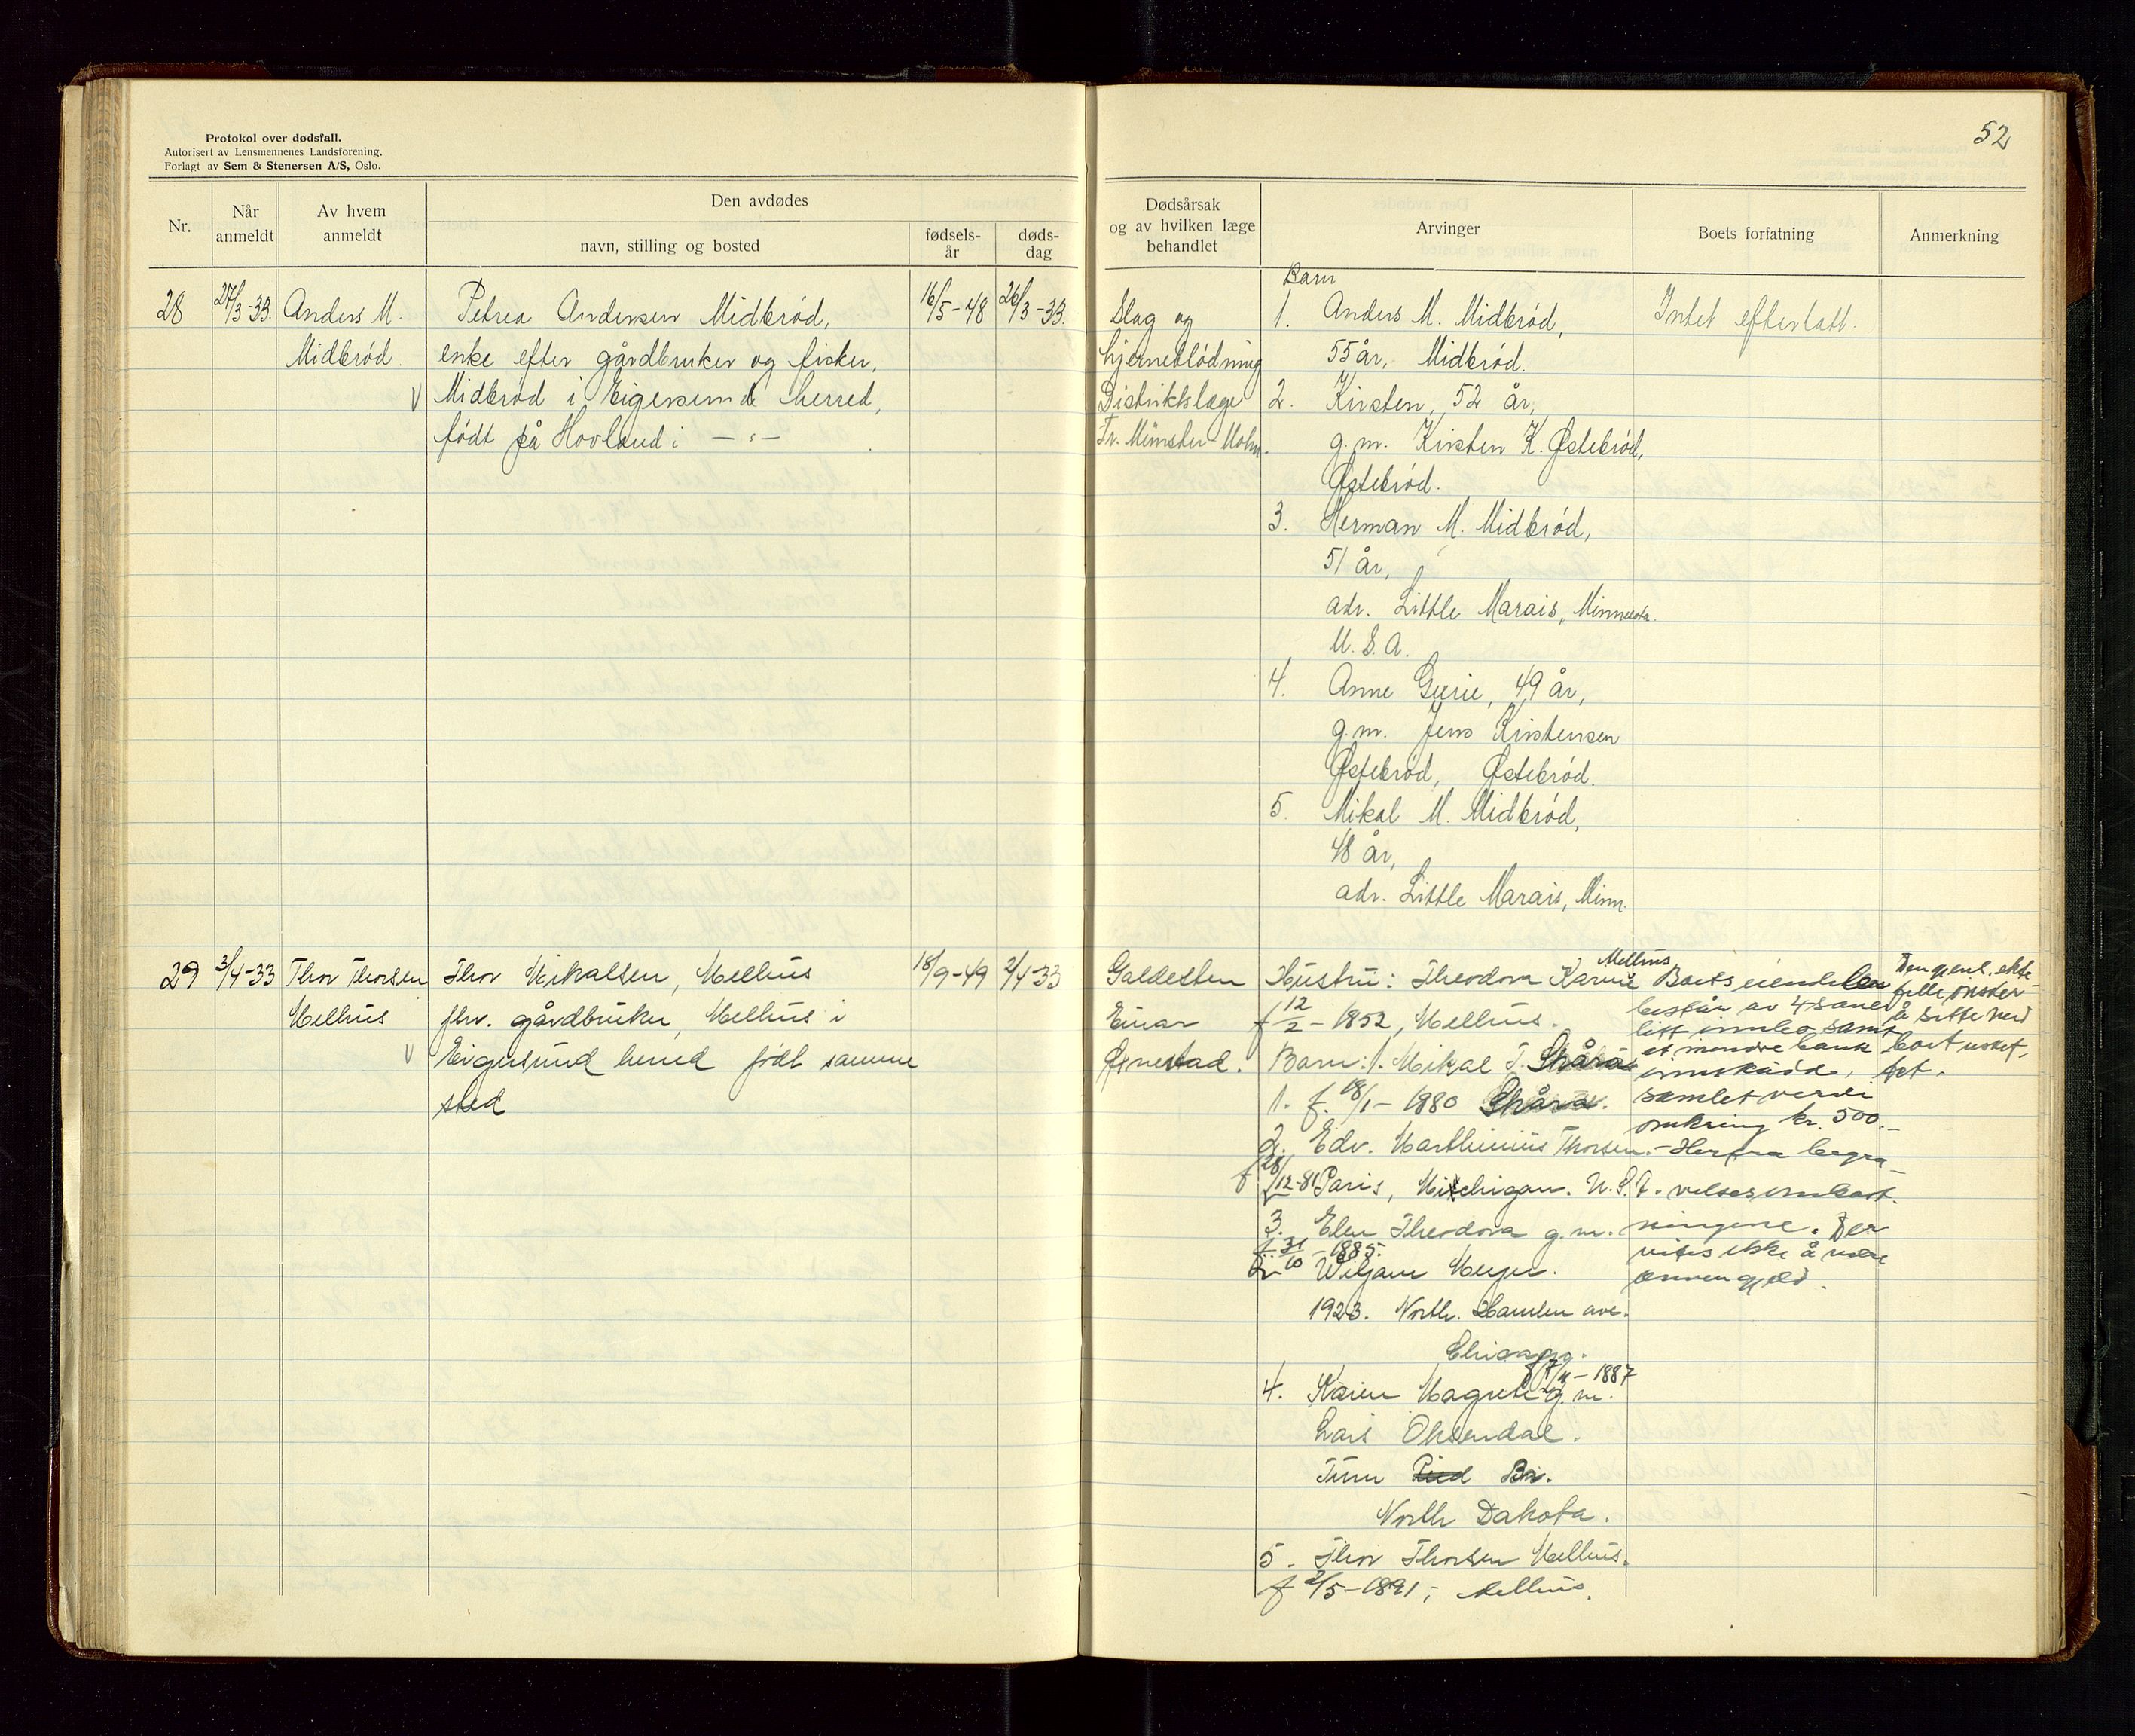 52
Protokol over dødsfall.
Autorisert av Lensmennenes Landsforening.
Forlagt av Sem & Stenersen A/S, Oslo.
Nr.
Når anmeldt
Av hvem anmeldt
Den avdødes
navn, stilling og bosted
fødsels-år
døds-dag
Dødsårsak og av hvilken læge behandlet
Arvinger
Boets forfatning
Anmerkning
28
27/3-33.
Anders M.
Midbrød.
Petrea Andersen Midbrød,
enke efter gårdbruker og fisker,
Midbrød i Eigersund herred,
født på Hovland i — " —
16/5-48
26/3-33.
Slag og
hjerneblødning
Distriktslæge
Fr. Münster Mohn.
Barn
1. Anders M. Midbrød,
55 år, Midbrød.
2. Kirsten, 52 år,
g.m. Kirsten K. Østebrød,
Østebrød.
3. Herman M. Midbrød,
51 år,
adr. Little Marais, Minnesota.
U.S.A.
4. Anne Gurie, 49 år,
g.m. Jens Kirstensen
Østebrød, Østebrød.
5. Mikal M. Midbrød,
48 år,
adr. Little Marais, Minn.
Intet efterlatt.
29
3/4-33
Thor Thorsen
Mellhus
Thor Mikalsen, Mellhus
fhv. gårdbruker, Mellhus i
Eigersund herred født samme
sted
18/9-49
2/4-33
Galdesten
Einar
Ørnestad.
Hustru: Theodora Karine Mellhus,
f 12/2 - 1852, Mellhus.
Barn: 1. Mikal T. Skåra
1. f. 18/1- 1880 Skåra.
2. Edv. Marthinius Thorsen.
f 28/12-81 Paris, Mitchigan. U.S.A.
3. Elen Theodora g.m.
f. 31/10 - 1885.
Wiljam Meyer.
1923. North. Hamlen ave.
Chicago.
4. Karen Magrete g.m. f 7/11-1887
Lars Oksendal.
Turn Br.
North Dakota.
5. Thor Thorsen Mellhus.
f 2/5-1891, Mellhus.
Boets eiendeler
består av 4 sauer
litt innbo samt
et mindre bank
innskudd,
samlet verdi
omkring kr. 500.-
- Herfra begra-
velsesomkost-
ningene. Der
vites ikke å være
annen gjeld.
Den gjenl. ekte-
felle ønsker
å sitte med
boet uskif-
tet.